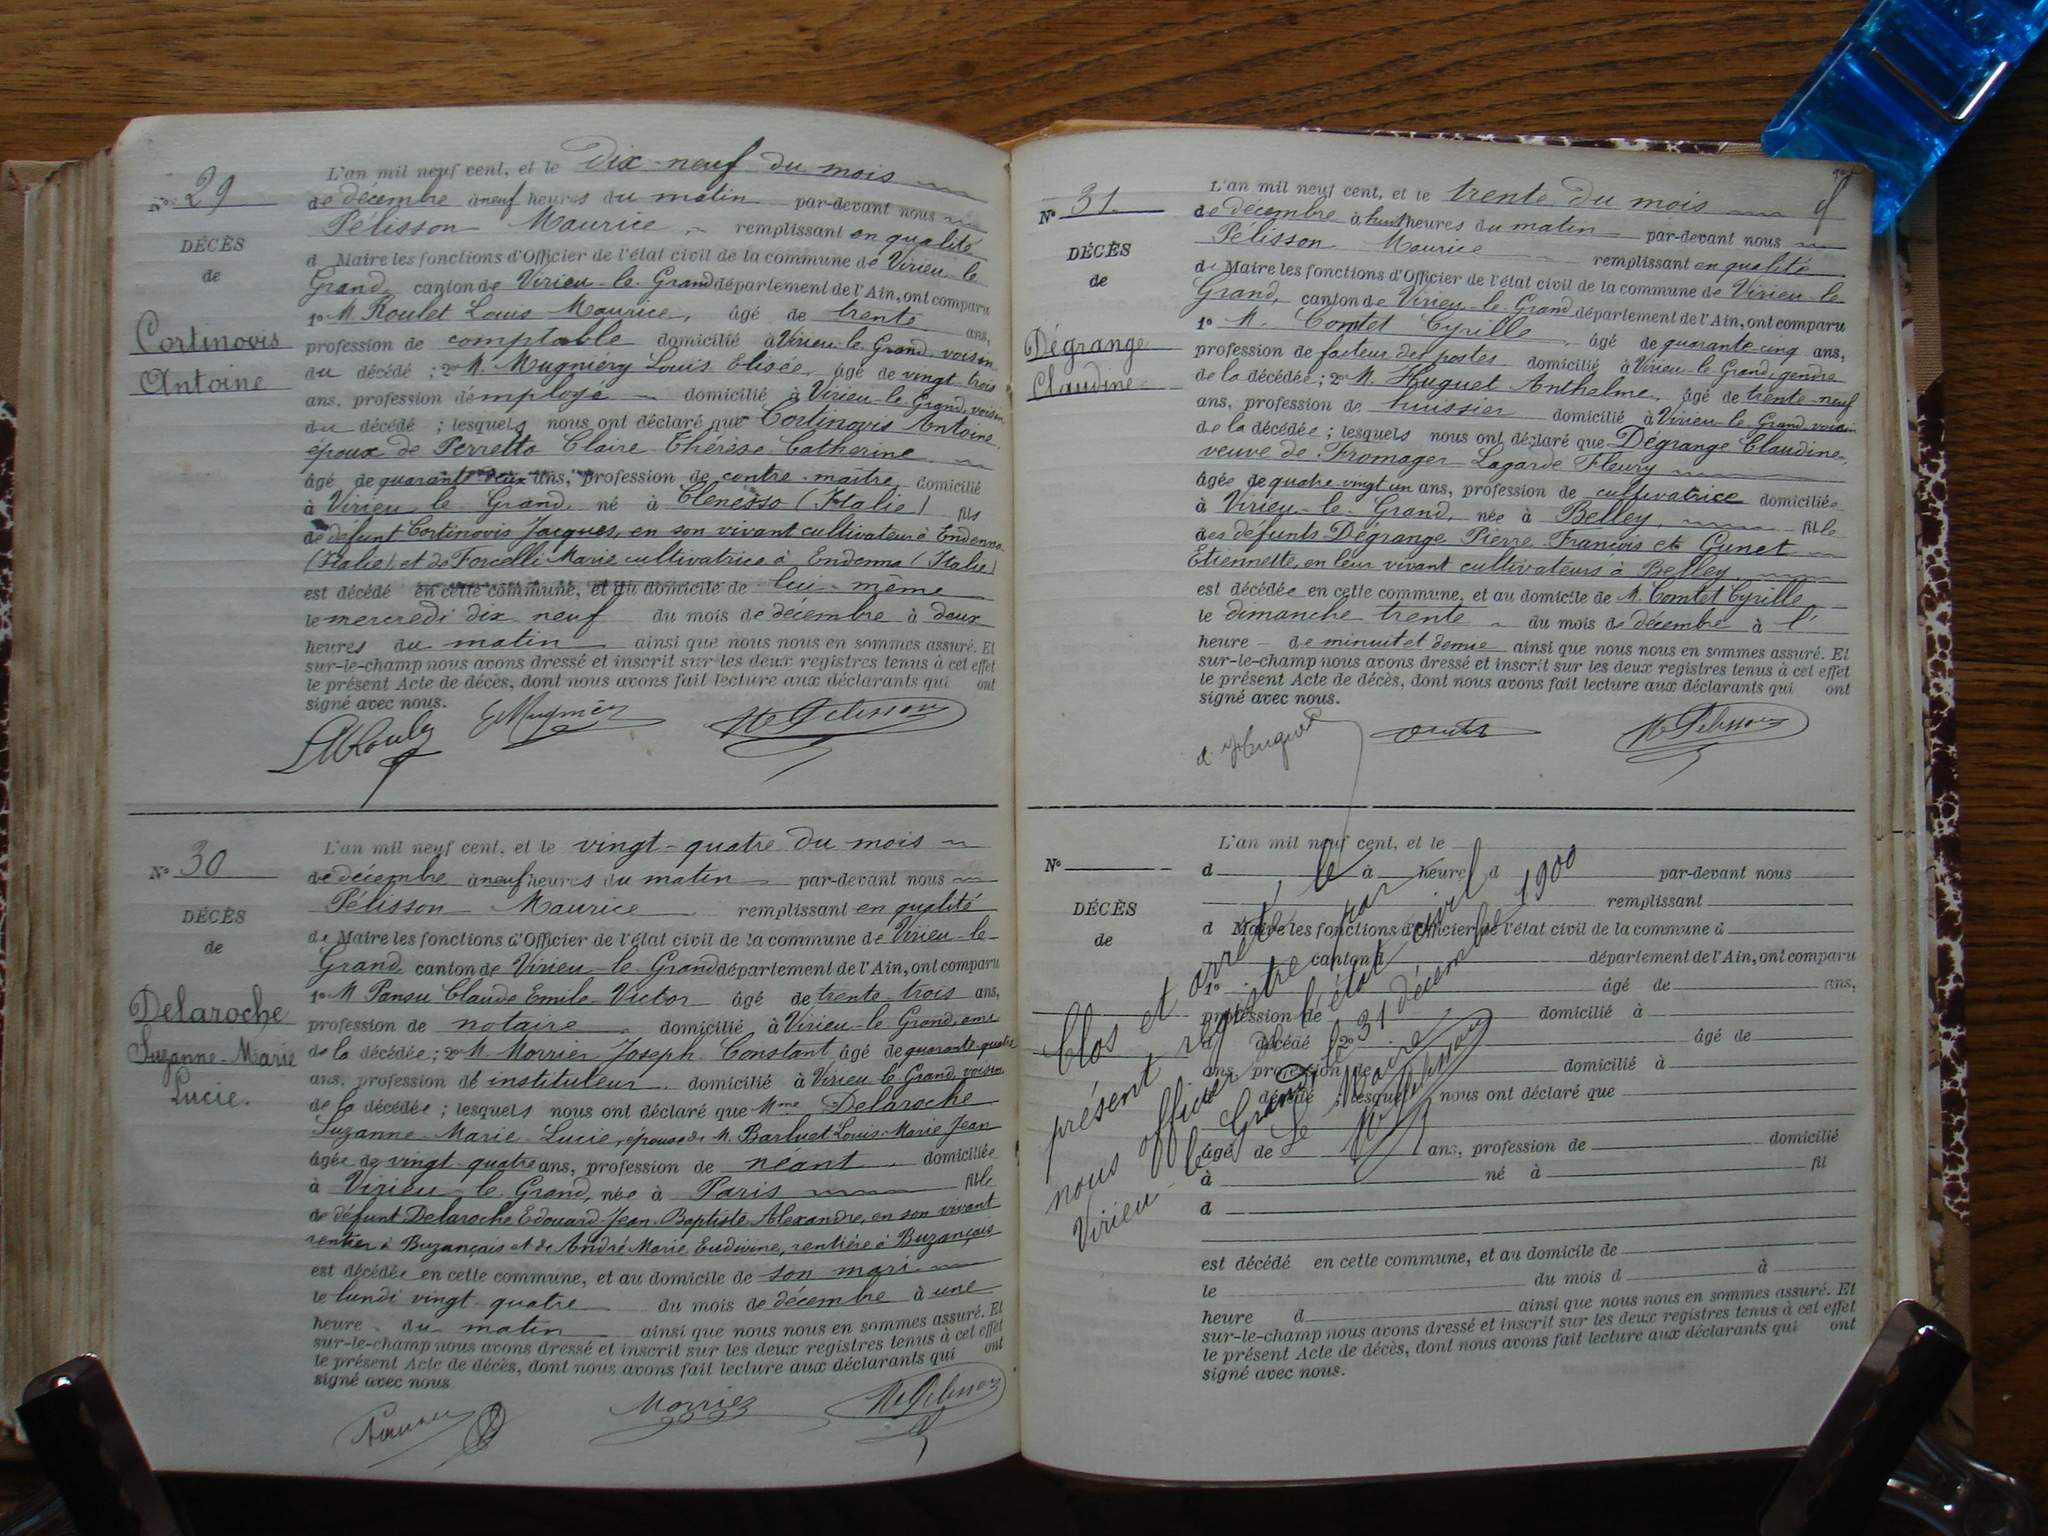 N° 29
DÉCÈS
de
Cortinovis
Antoine
L'an mil neuf cent, et le Dix-neuf du mois
de décembre à neuf heures du matin par-devant nous
Pélisson Maurice remplissant en qualité
de Maire les fonctions d'Officier de l'état civil de la commune de Virieu-le
Grand, canton de Virieu-le-Grand département de l'Ain, ont comparu
1° M Roulet Louis Maurice, âgé de trente ans,
profession de comptable domicilié à Virieu-le-Grand, voisin
du décédé ; 2° M. Mugniéry Louis Elisée, âgé de vingt-trois
ans, profession d'employé domicilié à Virieu-le-Grand, voisin
du décédé ; lesquels nous ont déclaré que Cortinovis Antoine,
époux de Perretto Claire Thérèse Catherine
âgé de quarante deux ans, profession de contre-maître domicilié
à Virieu-le-Grand, né à Clenesso (Italie) fils
de défunt Cortinovis Jacques, en son vivant cultivateur à Endenna
(Italie) et de Forcelli Marie cultivatrice à Endenna (Italie)
est décédé en cette commune, et au domicile de lui-même
le mercredi dix neuf du mois de décembre à deux
heures du matin ainsi que nous nous en sommes assuré. Et
sur-le-champ nous avons dressé et inscrit sur les deux registres tenus à cet effet
le présent Acte de décès, dont nous avons fait lecture aux déclarants qui ont
signé avec nous.
LM Roulet Mugniéry M Pelisson
N° 30
DÉCÈS
de
Delaroche
Suzanne-Marie
Lucie.
L'an mil neuf cent, et le vingt-quatre du mois
de décembre à neuf heures du matin par-devant nous
Pélisson Maurice remplissant en qualité
de Maire les fonctions d'Officier de l'état civil de la commune de Virieu-le-
Grand, canton de Virieu-le-Grand département de l'Ain, ont comparu
1° M Pansu Claude Emile Victor âgé de trente trois ans,
profession de notaire domicilié à Virieu-le-Grand, ami
de la décédée ; 2° M. Morrier Joseph Constant âgé de quarante quatre
ans, profession d'instituteur domicilié à Virieu-le-Grand, voisin
de la décédée ; lesquels nous ont déclaré que Mme Delaroche
Suzanne-Marie-Lucie, épouse de M. Barluet Louis-Marie Jean
âgée de vingt-quatre ans, profession de néant domiciliée
à Virieu-le-Grand, née à Paris fille
de défunt Delaroche Edouard-Jean-Baptiste Alexandre, en son vivant
rentier à Buzançais et de André Marie Eudivine, rentière à Buzançais
est décédée en cette commune, et au domicile de son mari
le lundi vingt-quatre du mois de décembre à une
heure du matin ainsi que nous nous en sommes assuré. Et
sur-le-champ nous avons dressé et inscrit sur les deux registres tenus à cet effet
le présent Acte de décès, dont nous avons fait lecture aux déclarants qui ont
signé avec nous
Pansu Morrier M Pelisson
N° 31
DÉCÈS
de
Dégrange
Claudine
L'an mil neuf cent, et le trente du mois
de décembre à huit heures du matin par-devant nous
Pélisson Maurice remplissant en qualité
de Maire les fonctions d'Officier de l'état civil de la commune de Virieu-le
Grand, canton de Virieu-le-Grand département de l'Ain, ont comparu
1° M. Comtet Cyrille, âgé de quarante-cinq ans,
profession de facteur des postes domicilié à Virieu-le-Grand, gendre
de la décédée ; 2° M. Huguet Anthelme, âgé de trente-neuf
ans, profession de huissier domicilié à Virieu-le-Grand, voisin
de la décédée ; lesquels nous ont déclaré que Dégrange Claudine,
veuve de Fromager-Lagarde Fleury
âgée de quatre vingt un ans, profession de cultivatrice domiciliée
à Virieu-le-Grand, née à Belley, fille
des défunts Dégrange Pierre-François et Cunet
Etiennette, en leur vivant cultivateurs à Belley
est décédée en cette commune, et au domicile de M. Comtet Cyrille
le dimanche trente du mois de décembre à l'
heure de minuit et demie ainsi que nous nous en sommes assuré. Et
sur-le-champ nous avons dressé et inscrit sur les deux registres tenus à cet effet
le présent Acte de décès, dont nous avons fait lecture aux déclarants qui ont
signé avec nous.
A. Huguet Comtet M Pelisson
N°
DÉCÈS
de
L'an mil neuf cent, et le
d à heure d par-devant nous
remplissant
d Maire les fonctions d'Officier de l'état civil de la commune d
canton d département de l'Ain, ont comparu
1° âgé de ans,
profession de domicilié à
d décédé ; 2° âgé de
ans, profession de domicilié à
d décédé ; lesquels nous ont déclaré que
âgé de ans, profession de domicilié
à né à fil
d
est décédé en cette commune, et au domicile de
le du mois d à
heure d ainsi que nous nous en sommes assuré. Et
sur-le-champ nous avons dressé et inscrit sur les deux registres tenus à cet effet
le présent Acte de décès, dont nous avons fait lecture aux déclarants qui ont
signé avec nous.
Clos et arrêté, le
présent registre par
nous officier de l'état civil
Virieu-le-Grand, le 31 décembre 1900
Le Maire,
M Pelisson